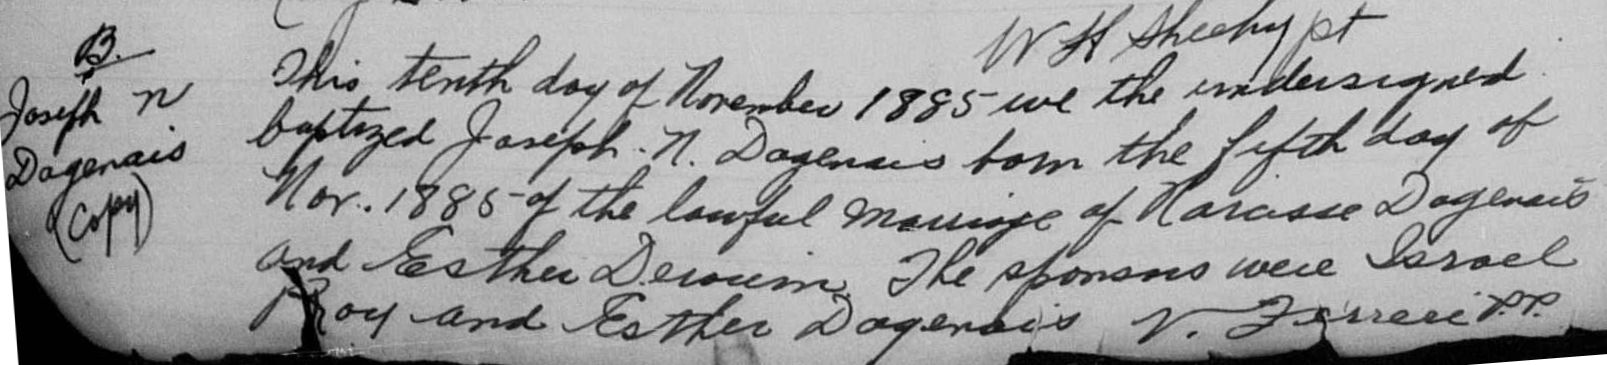 W H Sheehy pt
B.
Joseph N
Dagenais
(Copy)
This tenth day of November 1885 we the undersigned
baptized Joseph. N. Dagenais born the fifth day of
Nov. 1885 of the lawful marriage of Narcisse Dagenais
and Esther Derouin. The sponsors were Israel
Roy and Esther Dagenais V. Ferreri P.P.